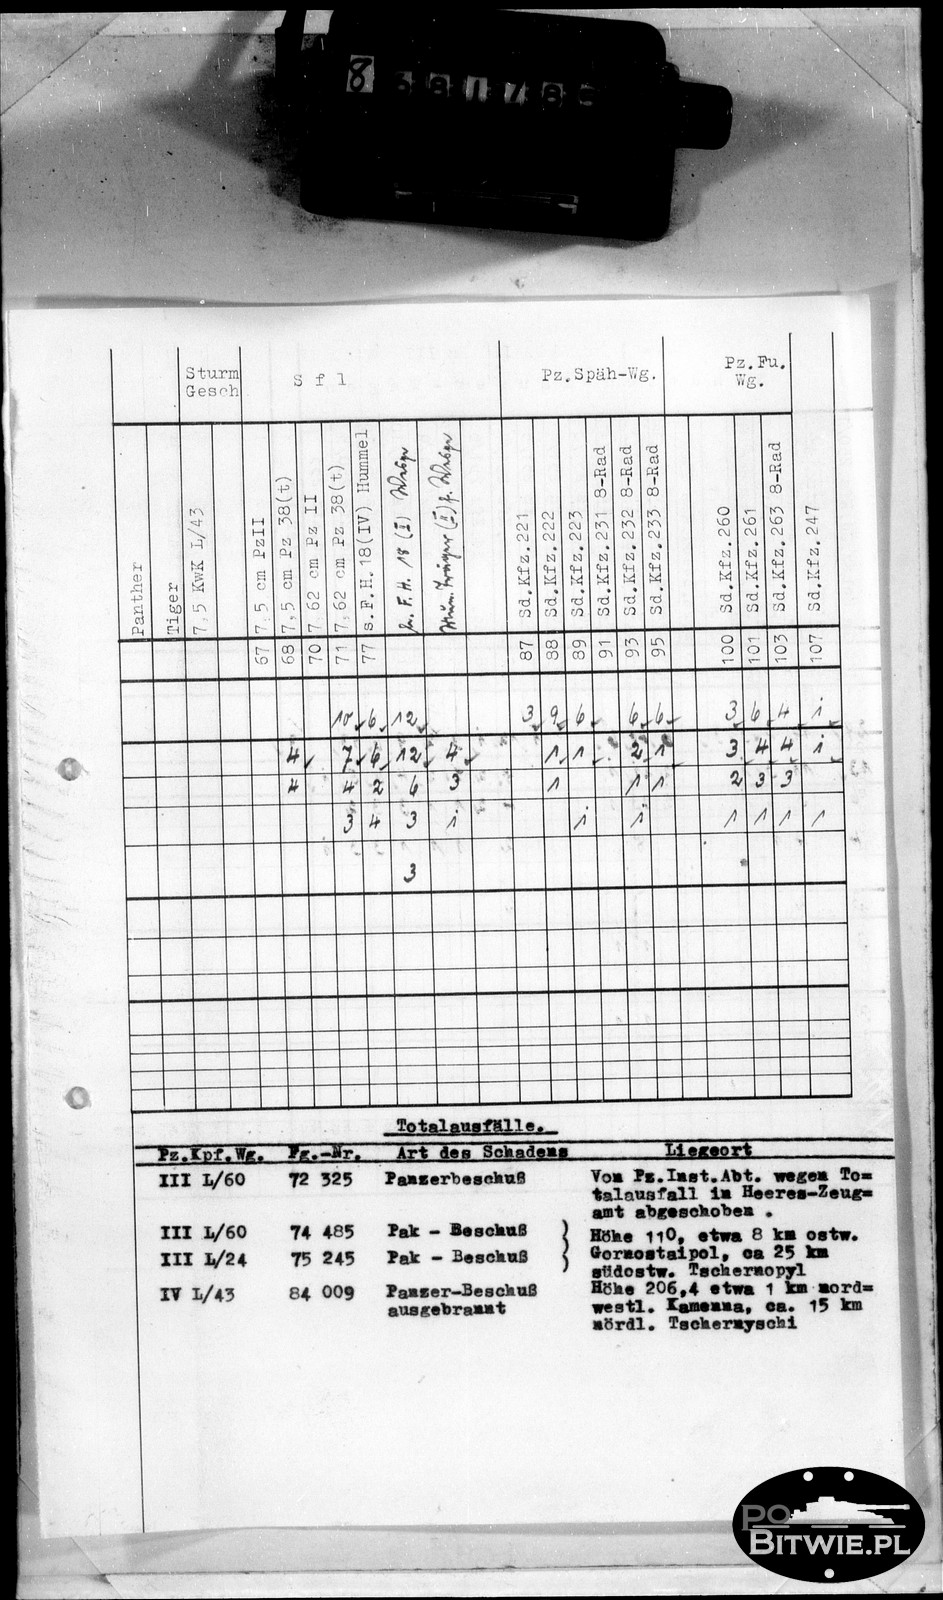 Sturm Gesch
S f l
Pz.Späh-Wg.
Pz.Fu. Wg.
Panther
Tiger
7,5 KwK L/43
7,5 cm PzII
7,5 cm Pz 38(t)
7,62 cm Pz II
7,62 cm Pz 38(t)
s.F.H.18(IV) Hummel
le. F.H. 18 (II) Wespe
Mun.träger (II) f. Wespe
Sd.Kfz.221
Sd.Kfz.222
Sd.Kfz.223
Sd.Kfz.231 8-Rad
Sd.Kfz.232 8-Rad
Sd.Kfz.233 8-Rad
Sd.Kfz.260
Sd.Kfz.261
Sd.Kfz.263 8-Rad
Sd.Kfz.247
67 68 70 71 77 87 88 89 91 93 95 100 101 103 107
10 6 12 3 9 6 6 6 3 6 4 1
4 7 6 12 4 1 1 2 1 3 4 4 1
4 4 2 6 3 1 1 1 2 3 3
3 4 3 1 1 1 1 1 1 1
3
Totalausfälle.
Pz.Kpf.Wg. Fg.-Nr. Art des Schadens Liegeort
III L/60 72 325 Panzerbeschuß Von Pz.Inst.Abt. wegen To=
talausfall in Heeres-Zeug=
amt abgeschoben .
III L/60 74 485 Pak - Beschuß ) Höhe 110, etwa 8 km ostw.
III L/24 75 245 Pak - Beschuß ) Gornostaipol, ca 25 km
südostw. Tschernopyl
IV L/43 84 009 Panzer-Beschuß Höhe 206,4 etwa 1 km nord=
ausgebrannt westl. Kamenna, ca. 15 km
nördl. Tschernyschi
PO
BITWIE.PL